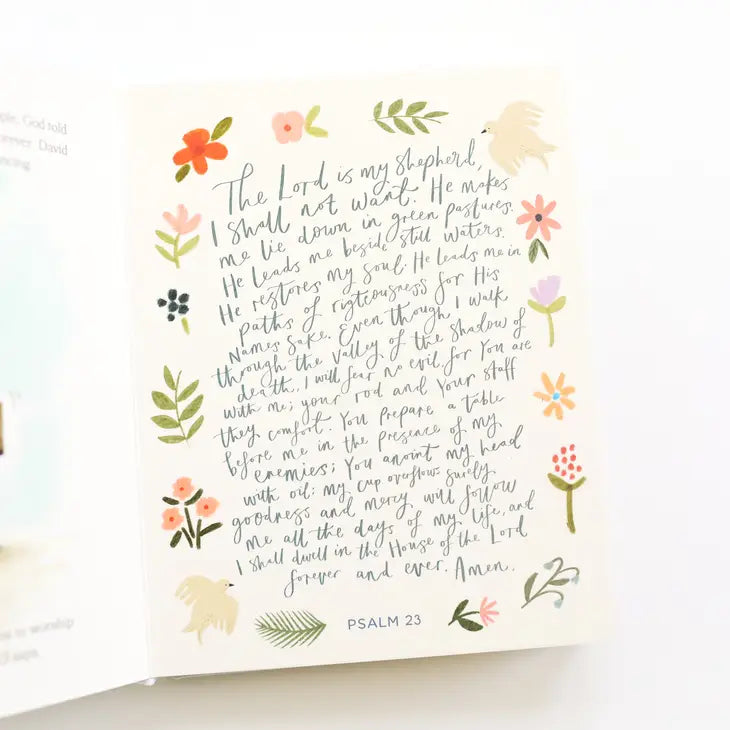 ple, God told
orever. David
ncing.
ow to worship
The Lord is my shepherd,
I shall not want. He makes
me lie down in green pastures.
He leads me beside still waters.
He restores my soul. He leads me in
paths of righteousness for His
Names Sake. Even though I walk
through the valley of the shadow of
death, I will fear no evil, for You are
with me; your rod and Your staff
they comfort. You prepare a table
before me in the presence of my
enemies; You anoint my head
with oil; my cup overflows surely
goodness and mercy will follow
me all the days of my life, and
I shall dwell in the House of the Lord
forever and ever. Amen.
PSALM 23